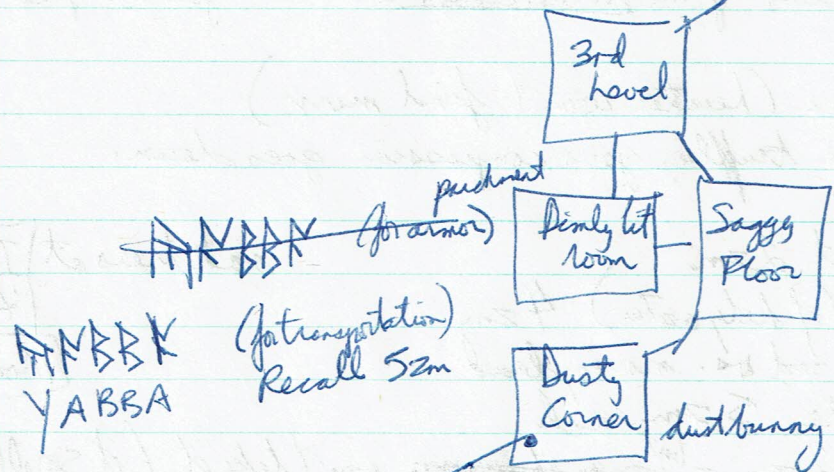 3rd
Level
parchment
(for armor)
Dimly lit
room
Saggy
Floor
(for transportation)
Recall 52m
YABBA
Dusty
Corner
dustbunny